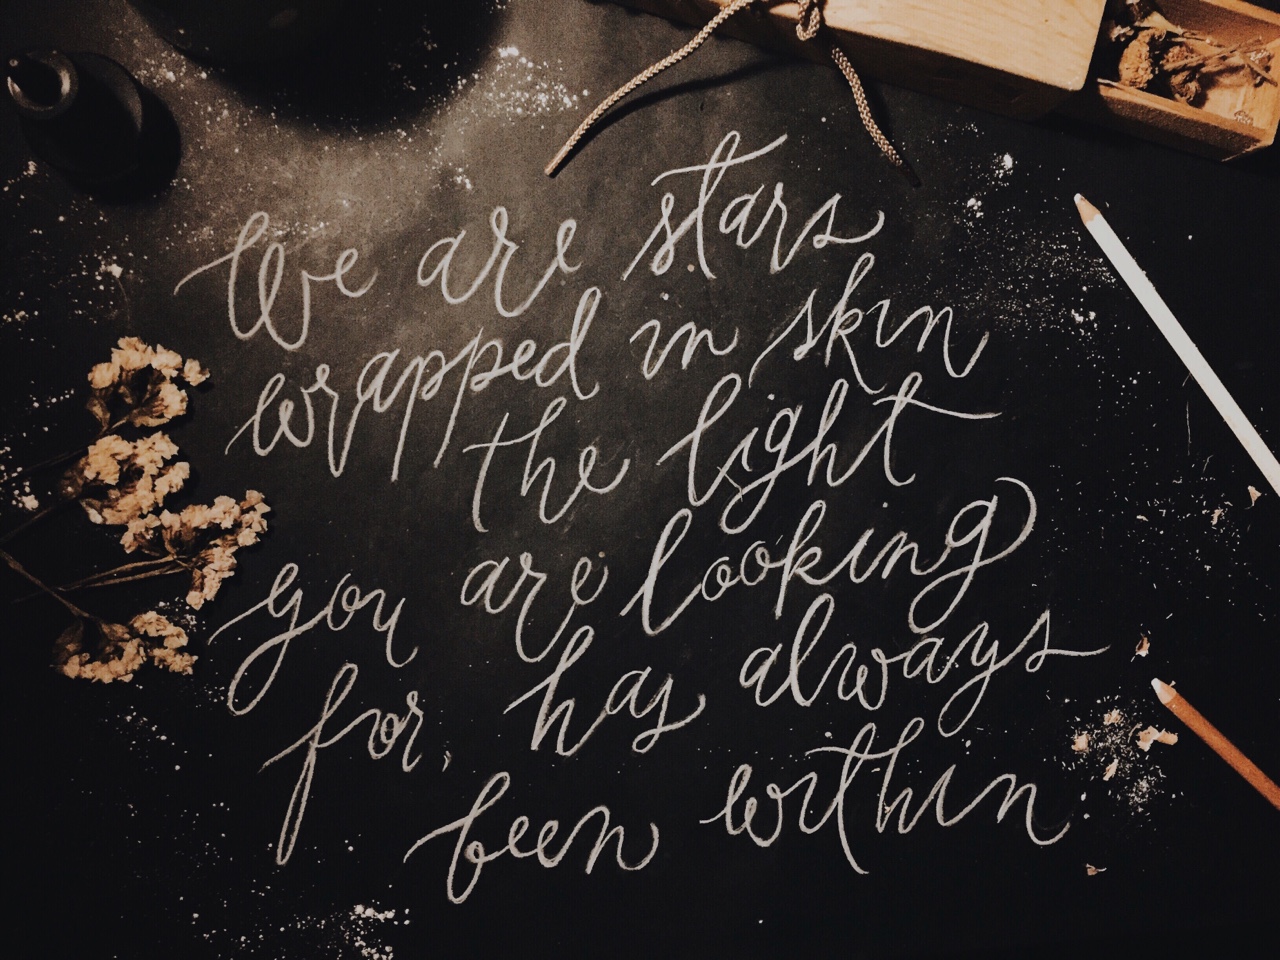 We are stars
wrapped in skin
the light
you are looking
for, has always
been within